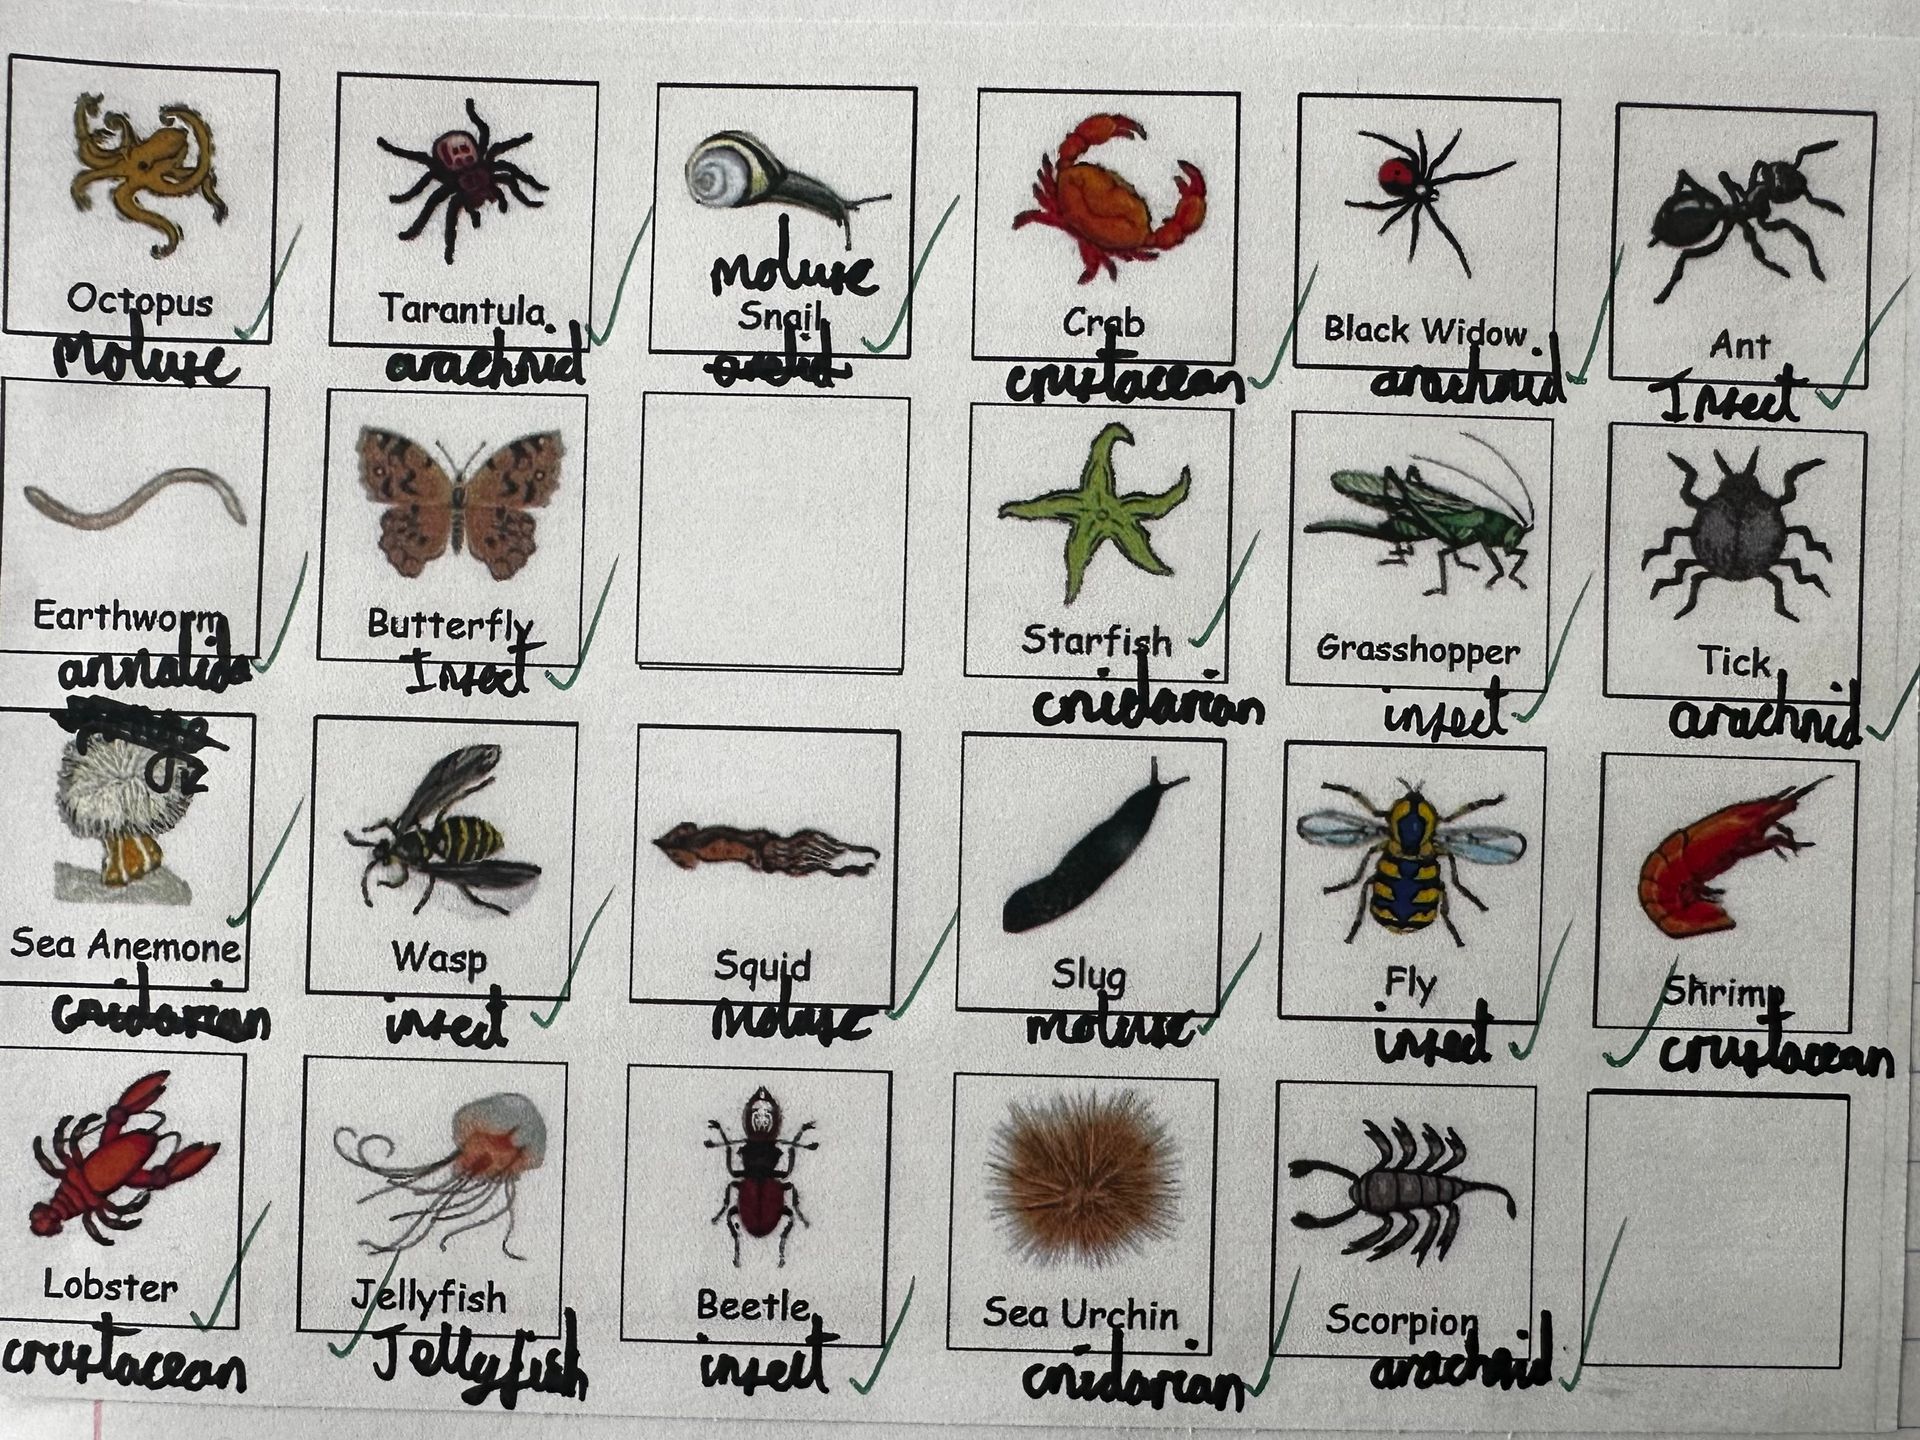 Octopus
Moluse
Tarantula
arachnid
Moluse
Snail
Crab
crustacean
Black Widow
arachnid
Ant
Insect
Earthworm
annalida
Butterfly
Insect
Starfish
cnidarian
Grasshopper
insect
Tick
arachnid
Sea Anemone
cnidarian
Wasp
insect
Squid
Moluse
Slug
moluse
Fly
insect
Shrimp
crustacean
Lobster
crustacean
Jellyfish
Jellyfish
Beetle
insect
Sea Urchin
cnidarian
Scorpion
arachnid